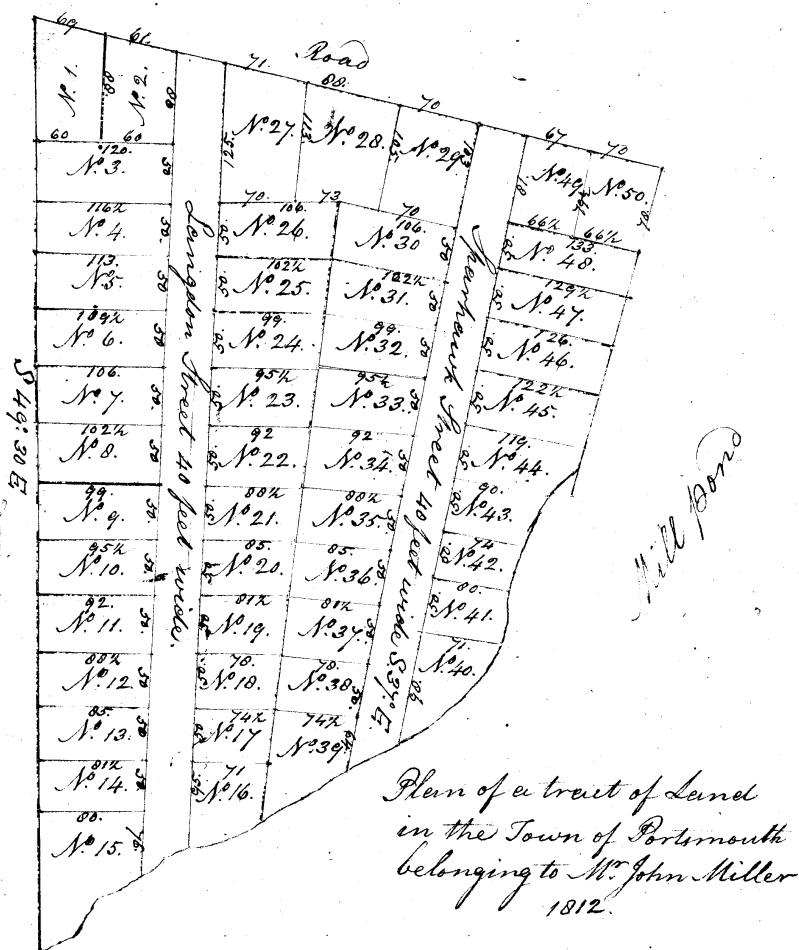 Road
69 61 71 88 70 67 70
No. 1. 88
No. 2. 88
60 60
120.
No. 3. 50
116½
No. 4. 50.
113.
No. 5. 50
109½
No. 6. 50
106.
No. 7. 50.
102½
No. 8. 50
99.
No. 9. 50.
95½
No. 10. 50.
92.
No. 11. 50.
88½
No. 12. 50
85.
No. 13. 50
81½
No. 14. 50
80.
No. 15. 76
S 49:30 E
Langdon Street 40 feet wide.
125 No. 27. 113
No. 28. 105
No. 29. 103
70. 73 70
106.
No. 26.
102½
No. 25.
99.
No. 24.
95½
No. 23.
92
No. 22.
88½
No. 21.
85.
No. 20.
81½
No. 19.
78.
No. 18.
74½
No. 17
71
No. 16.
106.
No. 30 50
122½
No. 31. 50
99.
No. 32. 50
95½
No. 33. 50
92.
No. 34. 50
88½
No. 35. 50
85.
No. 36. 50
81½
No. 37. 50
78.
No. 38. 50.
74½
No. 39
Street 40 feet wide S. 37° E.
No. 49
No. 50.
66½ 66½
133
No. 48.
129½
No. 47.
126.
No. 46.
122½
No. 45.
119.
No. 44.
90.
No. 43.
74
No. 42.
80.
No. 41.
71.
No. 40.
Mill pond
Plan of a tract of Land
in the Town of Portsmouth
belonging to Mr John Miller
1812.